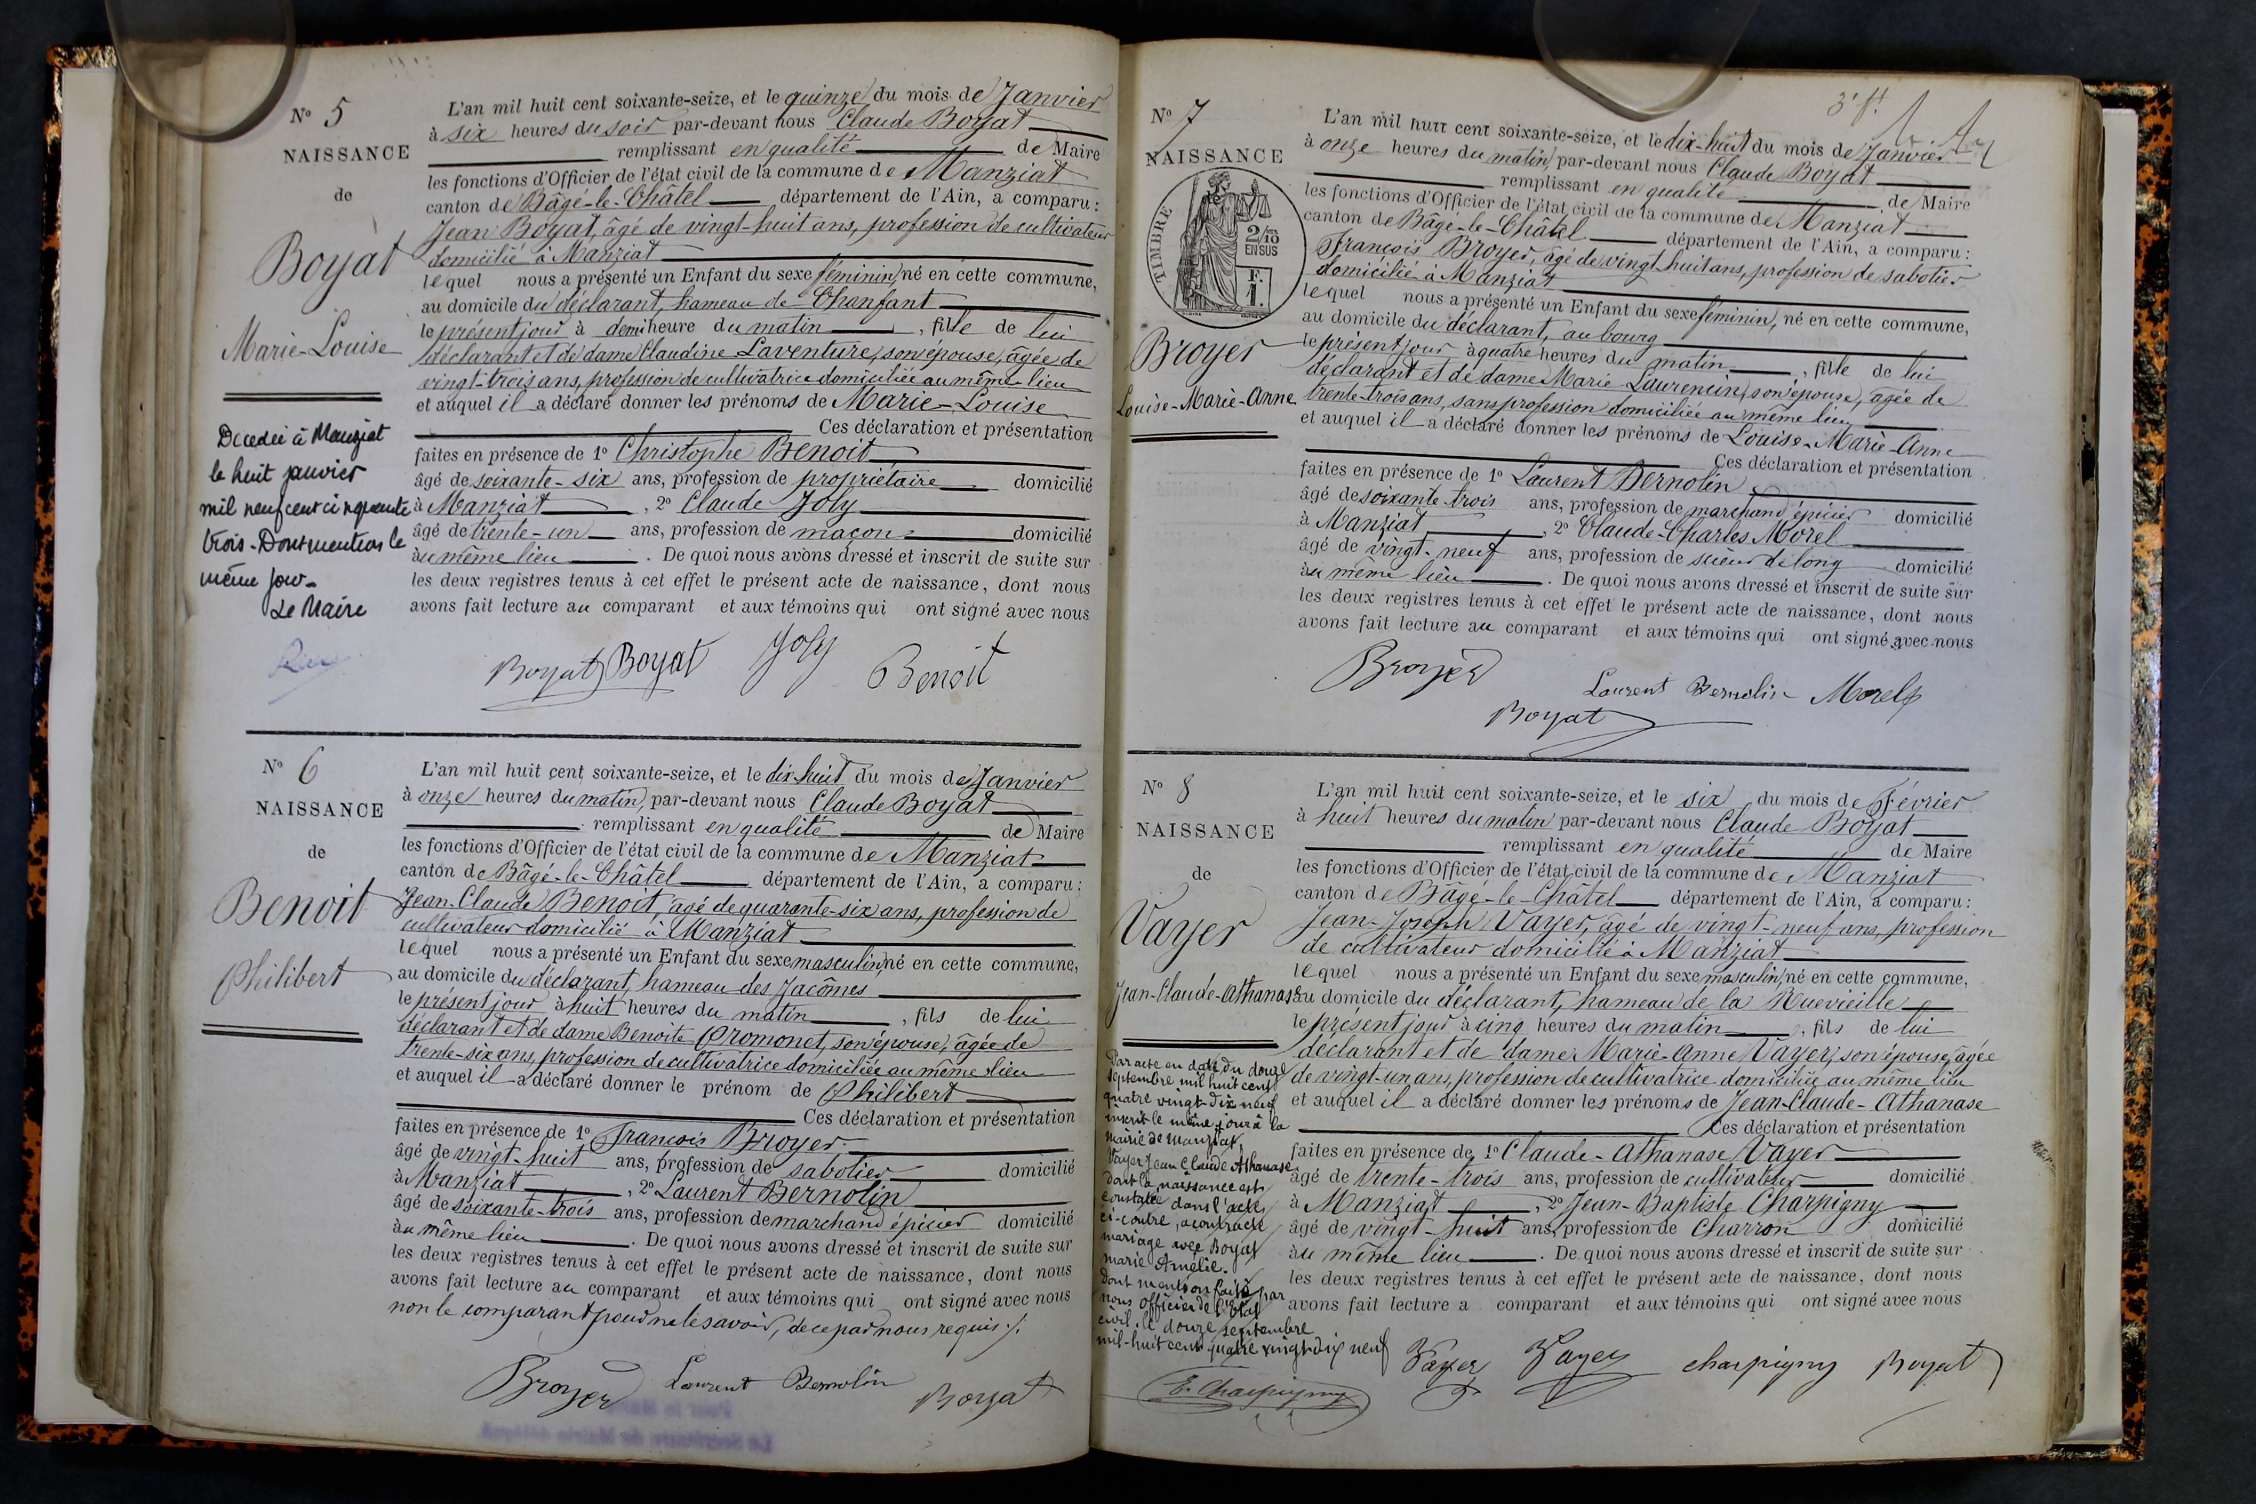 N° 5
NAISSANCE
de
Boyat
Marie-Louise
Décédée à Manziat
le huit janvier
mil neuf cent cinquante
trois. Dont mention le
même jour.
Le Maire
L'an mil huit cent soixante-seize, et le quinze du mois de Janvier
à six heures du soir par-devant nous Claude Boyat
remplissant en qualité de Maire
les fonctions d'Officier de l'état civil de la commune de Manziat
canton de Bâgé-le-Châtel département de l'Ain, a comparu :
Jean Boyat, âgé de vingt-huit ans, profession de cultivateur
domicilié à Manziat
lequel nous a présenté un Enfant du sexe féminin, né en cette commune,
au domicile du déclarant, hameau de Chanfant
le présent jour à demi heure du matin, fille de lui
déclarant et de dame Claudine Laventure, son épouse, âgée de
vingt-trois ans, profession de cultivatrice domiciliée au même lieu
et auquel il a déclaré donner les prénoms de Marie-Louise
Ces déclaration et présentation
faites en présence de 1° Christophe Benoit
âgé de soixante-six ans, profession de propriétaire domicilié
à Manziat, 2° Claude Joly
âgé de trente-un ans, profession de maçon domicilié
au même lieu. De quoi nous avons dressé et inscrit de suite sur
les deux registres tenus à cet effet le présent acte de naissance, dont nous
avons fait lecture au comparant et aux témoins qui ont signé avec nous
Boyat Boyat Joly Benoit
N° 6
NAISSANCE
de
Benoit
Philibert
L'an mil huit cent soixante-seize, et le dix-huit du mois de Janvier
à onze heures du matin, par-devant nous Claude Boyat
remplissant en qualité de Maire
les fonctions d'Officier de l'état civil de la commune de Manziat
canton de Bâgé-le-Châtel département de l'Ain, a comparu :
Jean-Claude Benoit, âgé de quarante-six ans, profession de
cultivateur domicilié à Manziat
lequel nous a présenté un Enfant du sexe masculin, né en cette commune,
au domicile du déclarant, hameau des Jacômes
le présent jour à huit heures du matin, fils de lui
déclarant et de dame Benoite Promonet, son épouse, âgée de
trente-six ans, profession de cultivatrice domiciliée au même lieu
et auquel il a déclaré donner le prénom de Philibert
Ces déclaration et présentation
faites en présence de 1° François Broyer
âgé de vingt-huit ans, profession de sabotier domicilié
à Manziat, 2° Laurent Bernolin
âgé de soixante-trois ans, profession de marchand épicier domicilié
au même lieu. De quoi nous avons dressé et inscrit de suite sur
les deux registres tenus à cet effet le présent acte de naissance, dont nous
avons fait lecture au comparant et aux témoins qui ont signé avec nous
non le comparant pour ne le savoir, de ce par nous requis ./.
Broyer Laurent Bernolin Boyat
3e ft
N° 7
NAISSANCE
TIMBRE
2/10
EN SUS
F.
1.
Broyer
Louise-Marie-Anne
L'an mil huit cent soixante-seize, et le dix-huit du mois de Janvier
à onze heures du matin, par-devant nous Claude Boyat
remplissant en qualité de Maire
les fonctions d'Officier de l'état civil de la commune de Manziat
canton de Bâgé-le-Châtel département de l'Ain, a comparu :
François Broyer, âgé de vingt-huit ans, profession de sabotier
domicilié à Manziat
lequel nous a présenté un Enfant du sexe féminin, né en cette commune,
au domicile du déclarant, au bourg
le présent jour à quatre heures du matin, fille de lui
déclarant et de dame Marie Laurencin, son épouse, âgée de
trente-trois ans, sans profession domiciliée au même lieu
et auquel il a déclaré donner les prénoms de Louise-Marie-Anne
Ces déclaration et présentation
faites en présence de 1° Laurent Bernolin
âgé de soixante-trois ans, profession de marchand épicier domicilié
à Manziat, 2° Claude-Charles Morel
âgé de vingt-neuf ans, profession de scieur de long domicilié
au même lieu. De quoi nous avons dressé et inscrit de suite sur
les deux registres tenus à cet effet le présent acte de naissance, dont nous
avons fait lecture au comparant et aux témoins qui ont signé avec nous
Broyer Laurent Bernolin Morel
Boyat
N° 8
NAISSANCE
de
Vayer
Jean-Claude-Athanase
Par acte en date du douze
septembre mil huit cent
quatre vingt-dix neuf
inscrit le même jour à la
mairie de Manziat,
Vayer Jean Claude Athanase
dont la naissance est
constatée dans l'acte
ci-contre, a contracté
mariage avec Boyat
Marie Amélie.
Dont mention faite par
nous officier de l'état
civil, le douze septembre
mil-huit cent quatre vingt-dix neuf
E. Charpigny
L'an mil huit cent soixante-seize, et le six du mois de Février
à huit heures du matin par-devant nous Claude Boyat
remplissant en qualité de Maire
les fonctions d'Officier de l'état civil de la commune de Manziat
canton de Bâgé-le-Châtel département de l'Ain, a comparu :
Jean-Joseph Vayer, âgé de vingt-neuf ans, profession
de cultivateur domicilié à Manziat
lequel nous a présenté un Enfant du sexe masculin, né en cette commune,
au domicile du déclarant, hameau de la Ruevieille
le présent jour à cinq heures du matin, fils de lui
déclarant et de dame Marie-Anne Vayer, son épouse, âgée
de vingt-un ans, profession de cultivatrice domiciliée au même lieu
et auquel il a déclaré donner les prénoms de Jean-Claude-Athanase
Ces déclaration et présentation
faites en présence de 1° Claude-Athanase Vayer
âgé de trente-trois ans, profession de cultivateur domicilié
à Manziat, 2° Jean-Baptiste Charpigny
âgé de vingt-huit ans, profession de Charron domicilié
au même lieu. De quoi nous avons dressé et inscrit de suite sur
les deux registres tenus à cet effet le présent acte de naissance, dont nous
avons fait lecture a comparant et aux témoins qui ont signé avec nous
Vayer Vayer charpigny Boyat